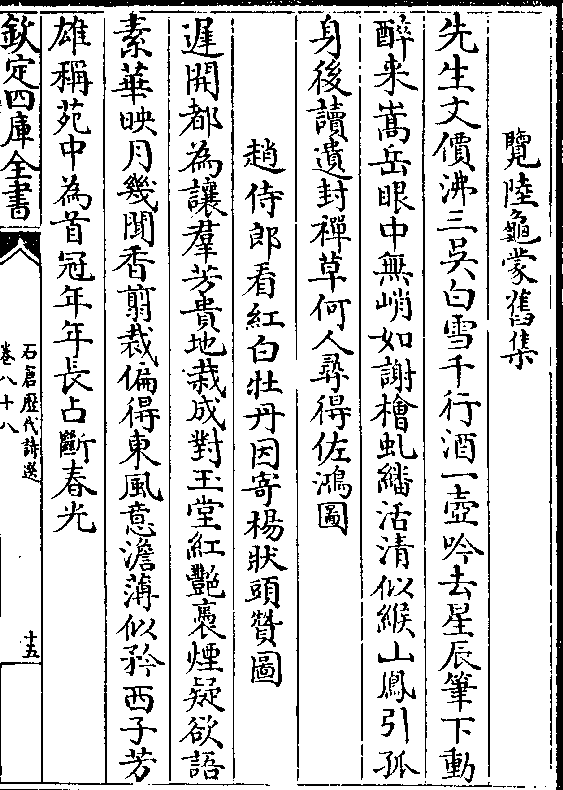 覽陸龜蒙舊集
先生文價沸三吳白雪千行酒一壺吟去星辰筆下動
醉來嵩岳眼中無峭如謝檜虬蟠活清似緱山鳳引孤
身後讀遺封禪草何人尋得佐鴻圖
趙侍郎看紅白牡丹因寄楊狀頭贊圖
遲開都為讓羣芳貴地栽成對玉堂紅艷裛煙疑欲語
素華映月幾聞香剪裁偏得東風意澹薄似矜西子芳
雄稱苑中為首冠年年長占斷春光
欽定四庫全書
石倉歷代詩選
卷八十八
十五